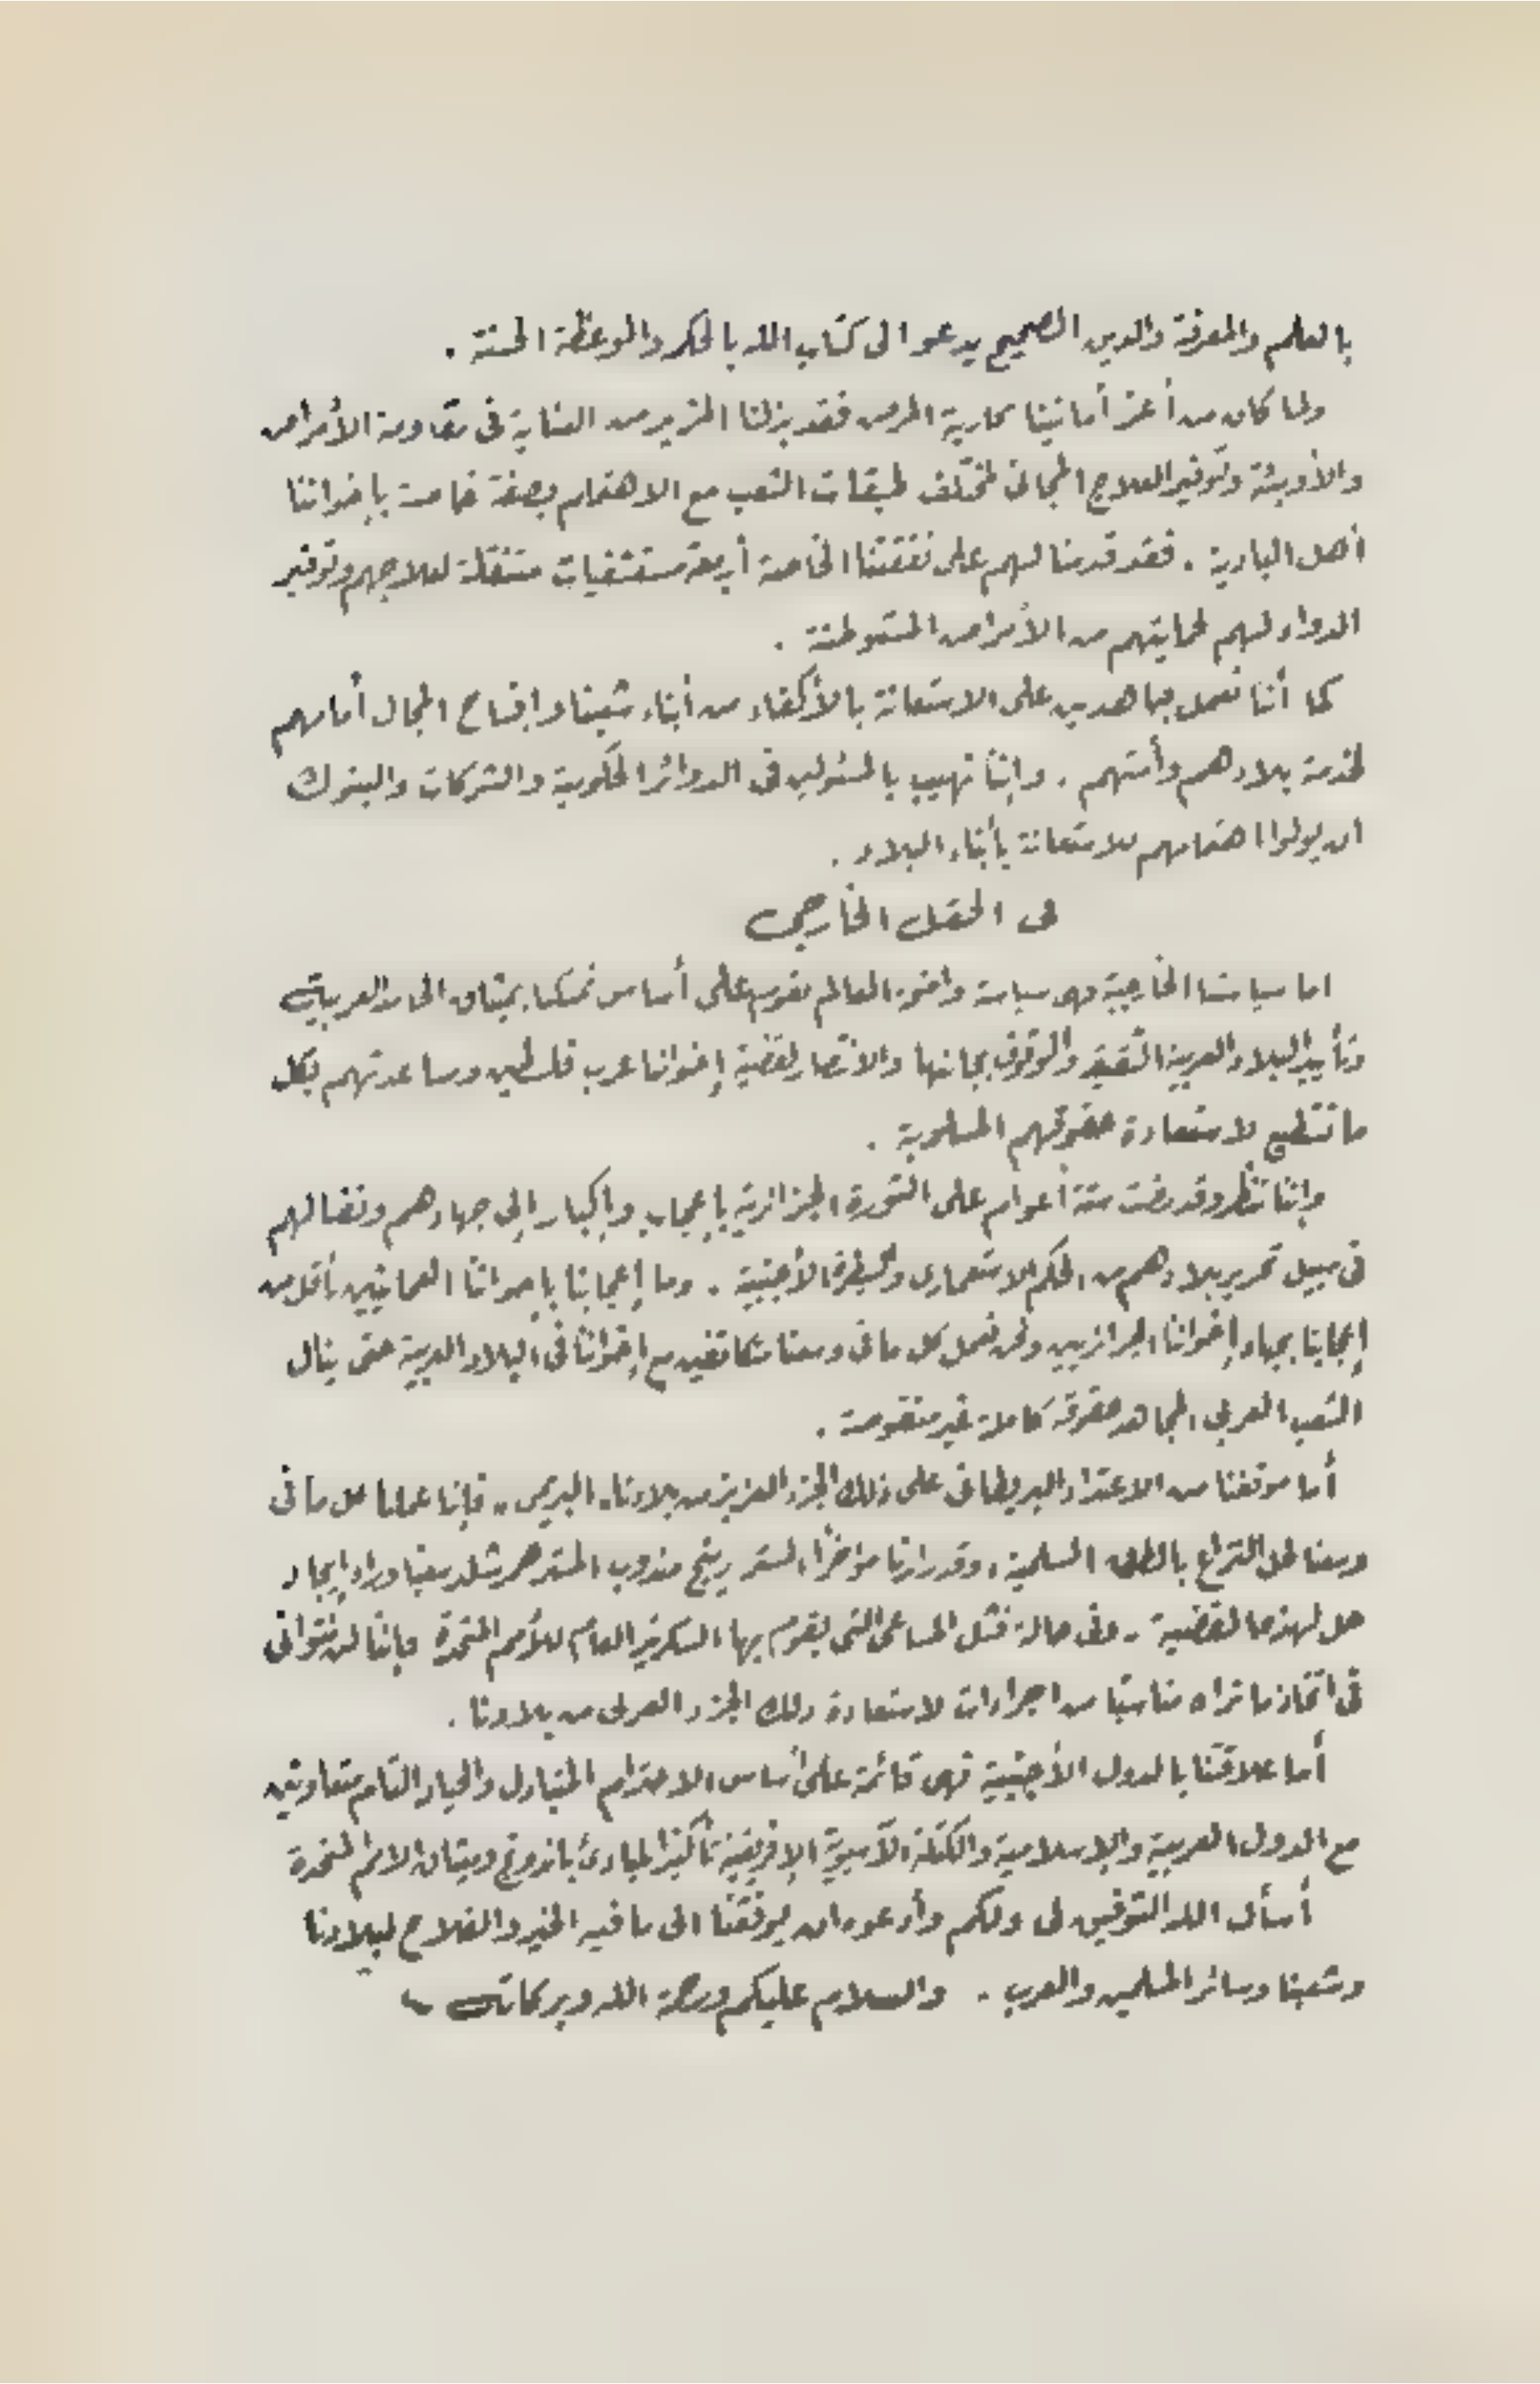 بالعلم والمعرفة والدين الصحيح يدعو الى كتاب الله بالحكم والموعظة الحسنة .
ولما كان من أعز أمانينا محاربة المرض فقد بذلنا المزيد من العناية فى مقاومة الأمراض
والأوبئة وتوفير العلاج المجانى لمختلف طبقات الشعب مع الاهتمام بصفة خاصة بإخواننا
أهل البادية . فقد قدمنا لهم على نفقتنا الخاصة أربعة مستشفيات متنقلة لعلاجهم وتوفير
الدواء لهم لحمايتهم من الأمراض المستوطنة .
كما أننا نعمل جاهدين على الاستعانة بالأكفاء من أبناء شعبنا وافساح المجال أمامهم
لخدمة بلادهم وأمتهم . وإننا نهيب بالمسئولين فى الدوائر الحكومية والشركات والبنوك
ان يولوا اهتمامهم للاستعانة بأبناء البلاد .
فى الحقل الخارجى
اما سياستنا الخارجية فهى سياسة واضحة المعالم تقوم على أساس تمسكنا بميثاق الجامعة العربية
وتأييد البلاد العربية الشقيقة والوقوف بجانبها والانتصار لقضية إخواننا عرب فلسطين ومساعدتهم بكل
ما نستطيع لاستعادة حقوقهم المسلوبة .
وإننا ننظر وقد مضت ستة أعوام على الثورة الجزائرية بإعجاب وإكبار إلى جهادهم ونضالهم
فى سبيل تحرير بلادهم من الحكم الاستعمارى والسيطرة الأجنبية . وما إعجابنا بإخواننا العمانيين بأقل من
إعجابنا بجهاد إخواننا الجزائريين ونحن نعمل كل ما فى وسعنا متكاتفين مع إخواننا فى البلاد العربية حتى ينال
الشعب العربى المجاهد حقوقه كاملة غير منقوصة .
أما موقفنا من الاعتداء البريطانى على ذلك الجزء العزيز من بلادنا " البريمى " فإننا عملنا كل ما فى
وسعنا لحل النزاع بالطرق السلمية ، وقد زارنا مؤخرًا المستر ريتج مندوب المستر همرشلد سعيًا وراء إيجاد
حل لهذه القضية . وفى حالة فشل المساعى التى يقوم بها السكرتير العام للأمم المتحدة فإننا لن نتوانى
فى اتخاذ ما نراه مناسبًا من اجراءات لاستعادة ذلك الجزء العربى من بلادنا .
أما علاقتنا بالدول الأجنبية فهى قائمة على أساس الاحترام المتبادل والحياد التام متعاونين
مع الدول العربية والإسلامية والكتلة الآسيوية الإفريقية تأكيدًا لمبادئ باندونج وميثاق الامم المتحدة
أسأل الله التوفيق لى ولكم وأدعوه ان يوفقنا الى ما فيه الخير والفلاح لبلادنا
وشعبنا وسائر المسلمين والعرب . والسلام عليكم ورحمة الله وبركاته